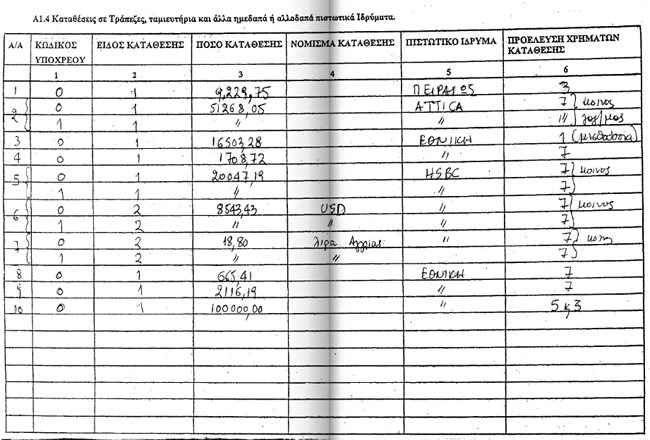 A1.4 Καταθέσεις σε Τράπεζες, ταμιευτήρια και άλλα ημεδαπά ή αλλοδαπά πιστωτικά Ιδρύματα.
Α/Α ΚΩΔΙΚΟΣ ΥΠΟΧΡΕΟΥ ΕΙΔΟΣ ΚΑΤΑΘΕΣΗΣ ΠΟΣΟ ΚΑΤΑΘΕΣΗΣ ΝΟΜΙΣΜΑ ΚΑΤΑΘΕΣΗΣ ΠΙΣΤΩΤΙΚΟ ΙΔΡΥΜΑ ΠΡΟΕΛΕΥΣΗ ΧΡΗΜΑΤΩΝ ΚΑΤΑΘΕΣΗΣ
1 2 3 4 5 6
1 0 1 9,229,75 ΠΕΙΡΑΙΩΣ 3
2 0 1 51268,05 ATTICA 7 κοινος
1 1 " " "
3 0 1 16503,28 ΕΘΝΙΚΗ 1 (μισθοδοσία)
4 0 1 1708,72 " 7
5 0 1 20047,19 HSBC 7 κοινος
1 1 " " 7
6 0 2 8543,43 USD " 7 κοινος
1 2 " " " 7
7 0 2 18,80 Λιρα Αγγλίας " 7
1 2 " " 7
8 0 1 665,41 ΕΘΝΙΚΗ 7
9 0 1 2116,19 " 7
10 0 1 100000,00 " 5 κ 3